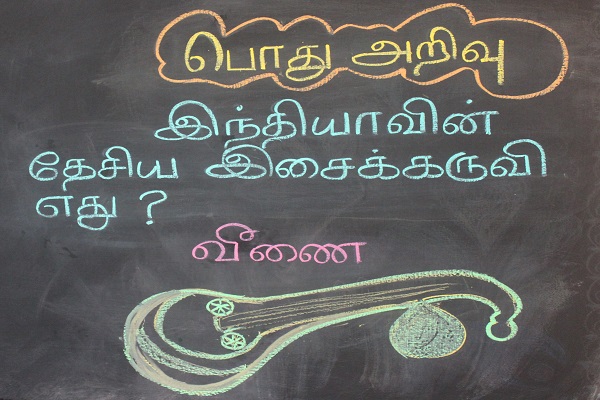 பொது அறிவு
இந்தியாவின்
தேசிய இசைக்கருவி
எது ?
வீணை